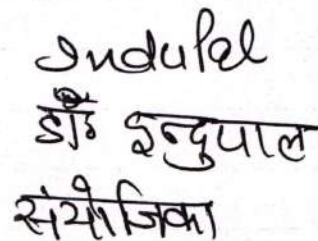 Indu Pal
डॉ॰ इन्दुपाल
संयोजिका